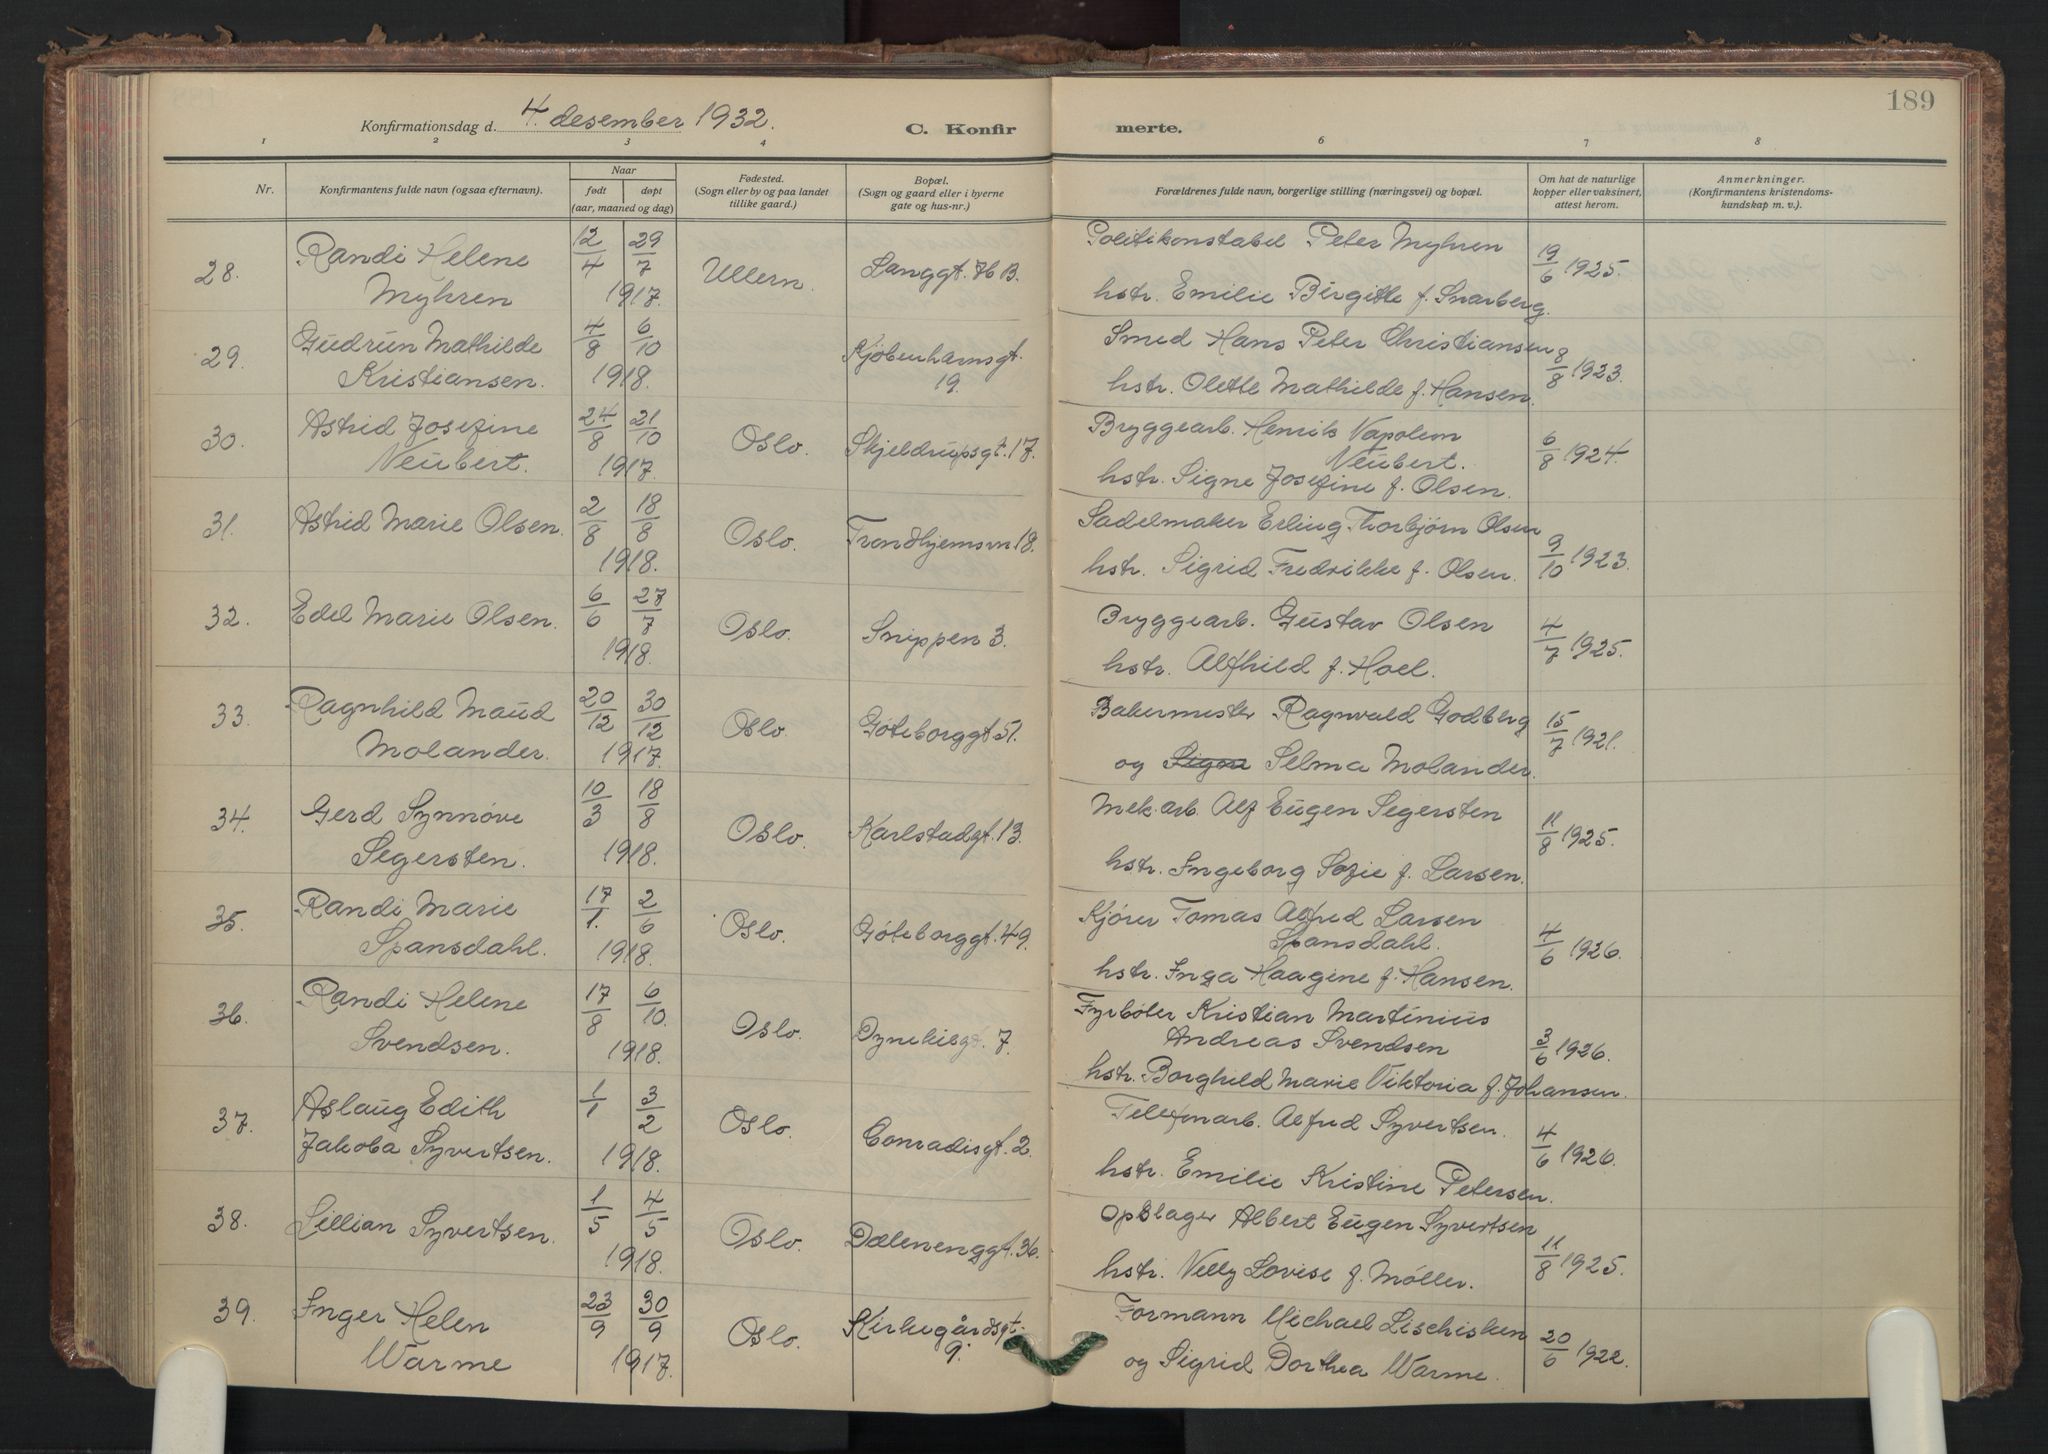 189
Konfirmationsdag d. 4. desember 1932.
C. Konfirmerte.
1 2 3 4 6 7 8
Nr.
Konfirmantens fulde navn (ogsaa efternavn).
Naar
født døpt
(aar, maaned og dag)
Fødested.
(Sogn eller by og paa landet
tillike gaard.)
Bopæl.
(Sogn og gaard eller i byerne
gate og hus-nr.)
Forældrenes fulde navn, borgerlige stilling (næringsvei) og bopæl.
Om hat de naturlige
kopper eller vaksinert,
attest herom.
Anmerkninger.
(Konfirmantens kristendoms-
kundskap m. v.).
28. Randi Helene 12/4 29/7 Ullern. Langgt. 76 B. Politikonstabel Peter Myhren 19/6 1925.
Myhren 1917. hstr. Emilie Birgitte f. Snarberg.
29. Gudrun Mathilde 4/8 6/10 Kjøbenhavnsgt. Smed Hans Peter Christiansen 8/8 1923.
Kristiansen. 1918. 19. hstr. Olette Mathilde f. Hansen.
30. Astrid Josefine 24/8 21/10 Oslo. Skjeldrupsgt. 17. Bryggearb. Henrik Napoleon 6/8 1924.
Neubert. 1917. Neubert.
hstr. Signe Josefine f. Olsen.
31. Astrid Marie Olsen. 2/8 18/8 Oslo. Trondhjemsvn 18. Sadelmaker Erling Thorbjørn Olsen 9/10 1923.
1918. hstr. Sigrid Fredrikke f. Olsen.
32. Edel Marie Olsen. 6/6 27/7 Oslo. Snippen 3. Bryggearb. Gustav Olsen 4/7 1925.
1918. hstr. Alfhild f. Hoel.
33. Ragnhild Maud 20/12 30/12 Oslo. Gøteborggt 51. Bakermester Ragnvald Godberg 15/7 1921.
Molander. 1917. og Signe Selma Molander.
34. Gerd Synnøve 10/3 18/8 Oslo. Karlstadgt. 13. Mek. arb. Alf Eugen Segersten 11/8 1925.
Segersten. 1918. hstr. Ingeborg Sofie f. Larsen.
35. Randi Marie 17/1. 2/6 Oslo. Gøteborggt. 49. Kjører Tomas Alfred Larsen 4/6 1926.
Spansdahl. 1918. Spansdahl.
hstr. Inga Haagine f. Hansen.
36. Randi Helene 17/8 6/10 Oslo. Dynekilgt. 7. Fyrbøter Kristian Martinius 3/6 1926.
Svendsen. 1918. Andreas Svendsen
hstr. Borghild Marie Viktoria f. Johansen.
37. Aslaug Edith 1/1 3/2 Oslo. Conradisgt. 2. Telefonarb. Alfred Syvertsen. 4/6 1926.
Jakoba Syvertsen. 1918. hstr. Emilie Kristine Petersen.
38. Lillian Syvertsen. 1/5 4/5 Oslo. Dælenenggt. 36. Opslager Albert Eugen Syvertsen 11/8 1925.
1918. hstr. Nelly Lovise f. Møller.
39. Inger Helen 23/9 30/9 Oslo. Kirkegårdsgt. Formann Michael Lischisken 20/6 1922.
Warme 1917. 9. og Sigrid Dorthea Warme.